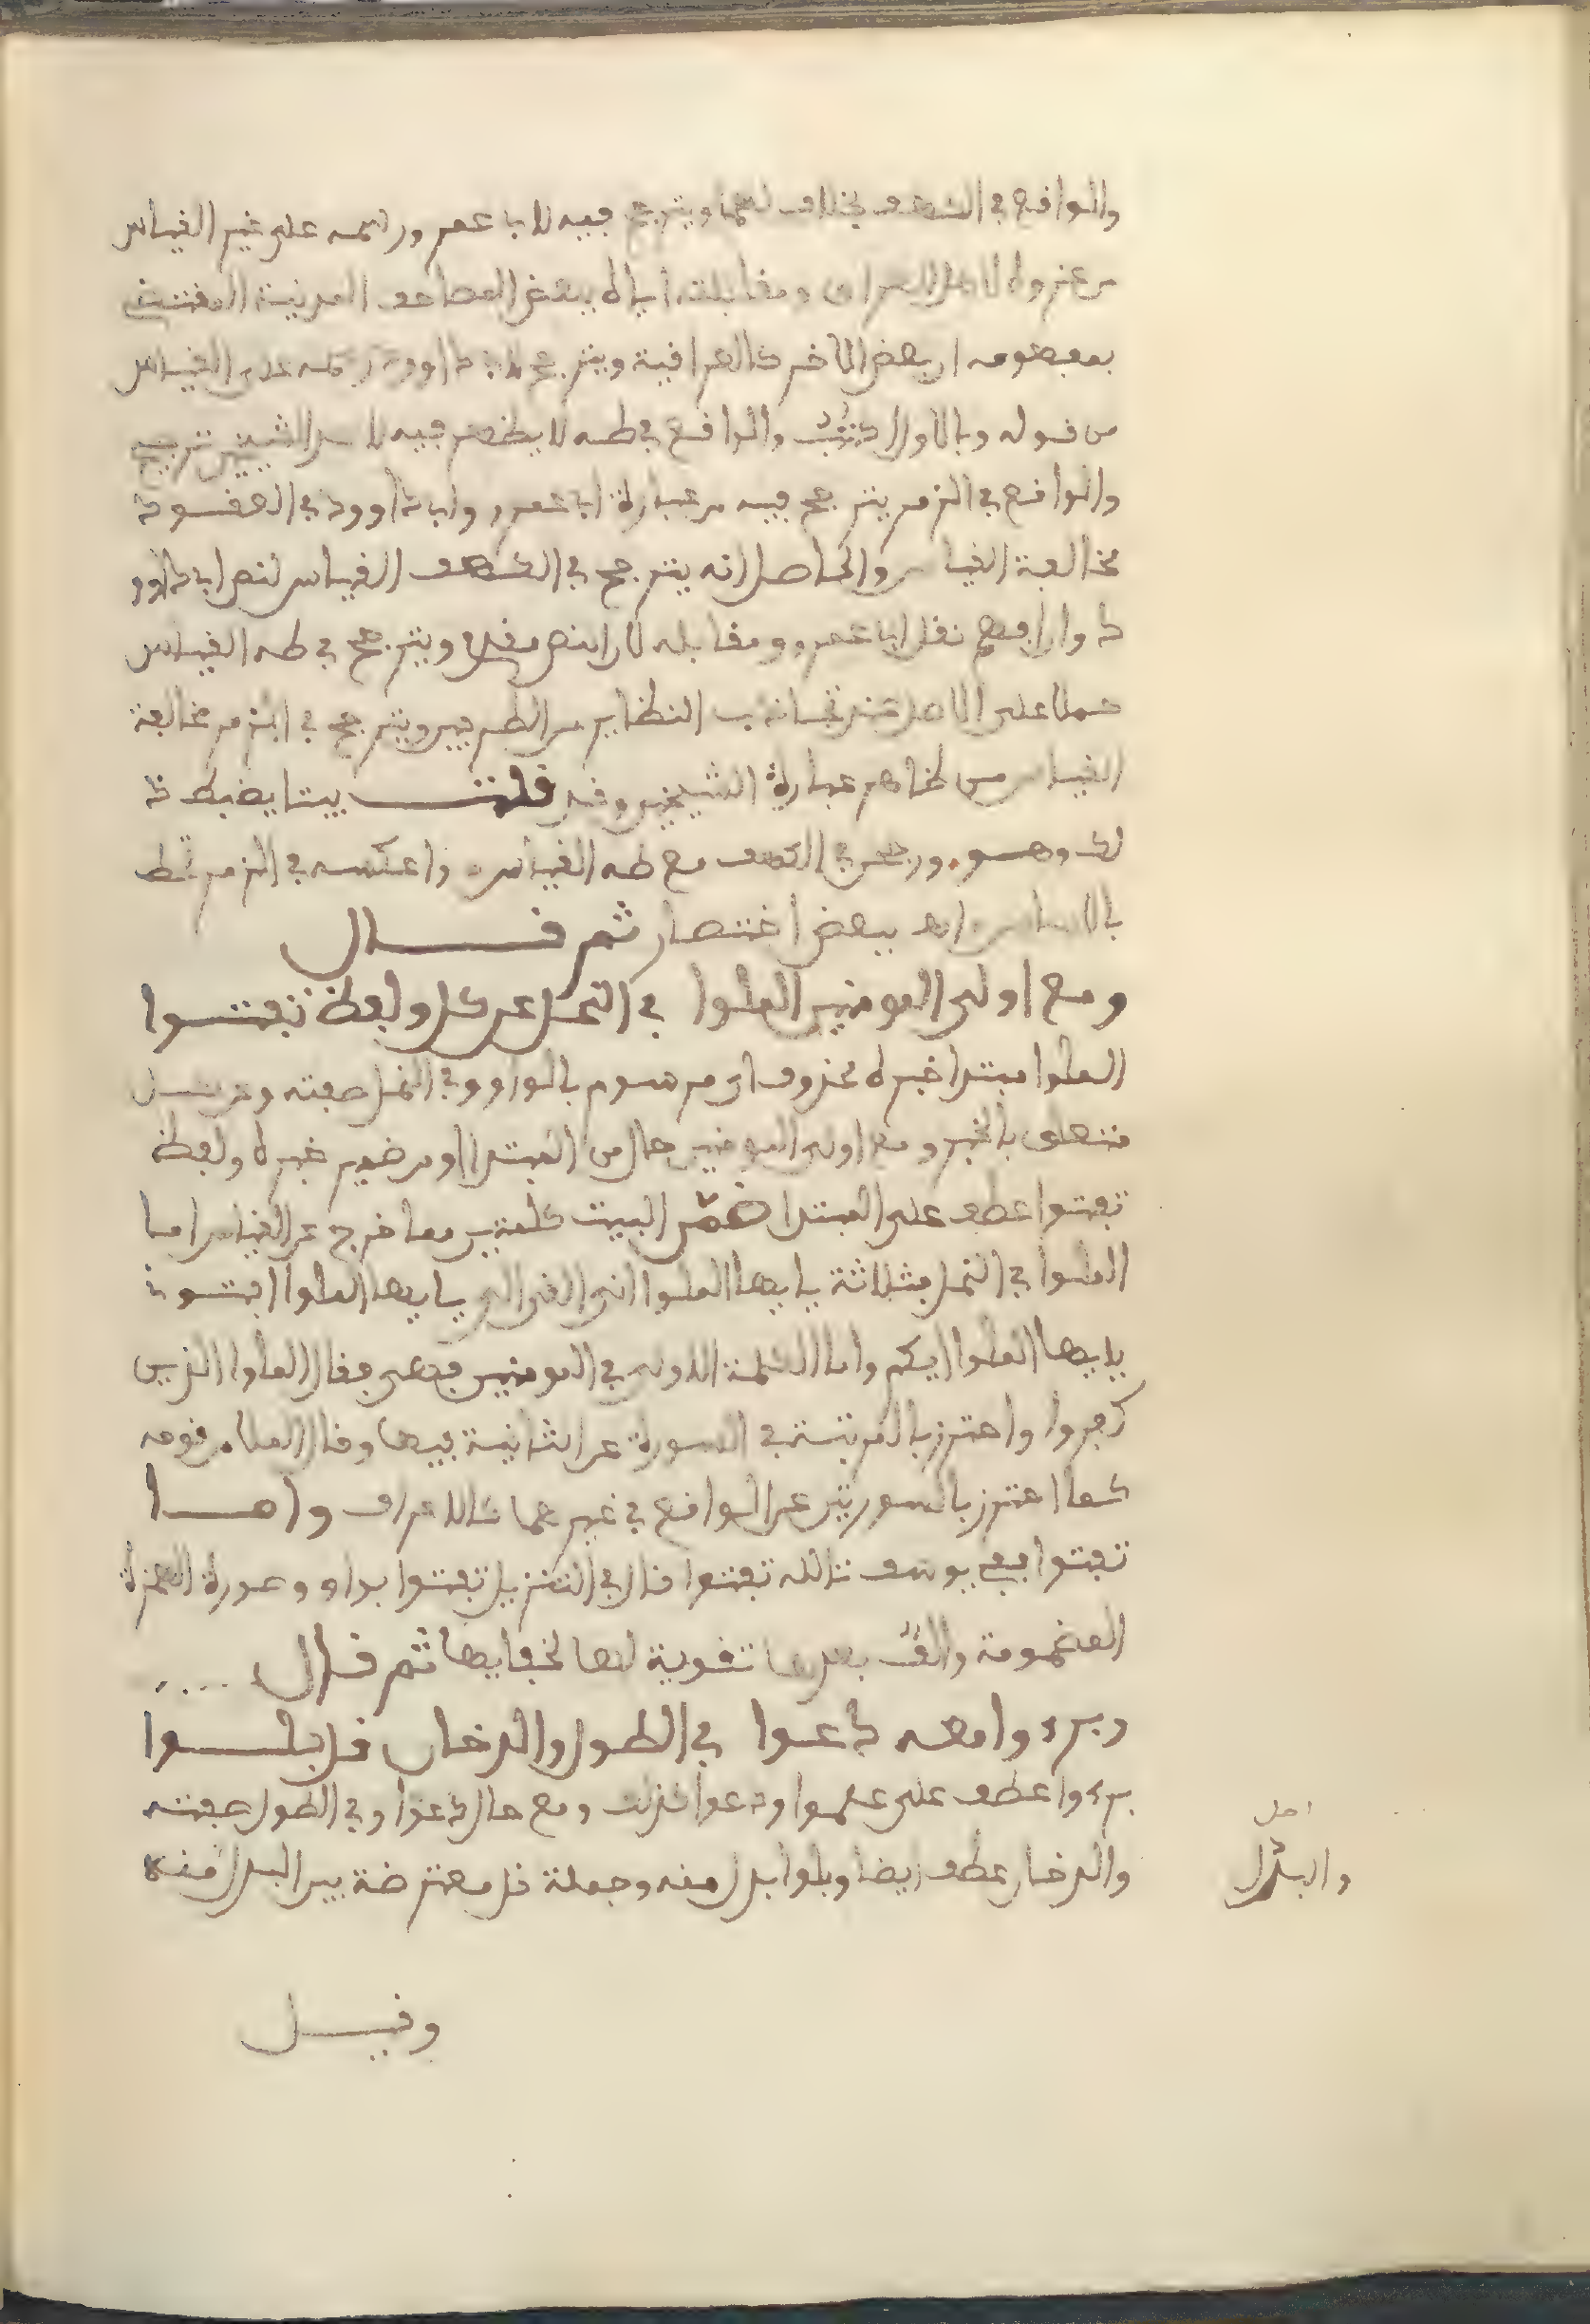 والواقع في الكهف بخلاف لهما ويترجح فيه لابي عمر ورسمه على غير القياس
من عزوه لاهل العراق ومقابلته اياه ببعض المصاحف المدنية المقتضي
بمفهومه ان بعض الاخر كالعراقية ويترجح لابي داوود رسمه على القياس
من قوله وبالاول اكتب والواقع في طه لا يظهر فيه لاحد الشيخين ترجيح
والواقع في الزمر يترجح فيه من عبارة ابي عمرو وابي داوود في العقود
مخالفة القياس والحاصل انه يترجح في الكهف القياس لنص ابي داوود
وان رجح نقل ابي عمرو ومقابله لان النص مقدم ويترجح في طه القياس
حملا على الاصل عند تجاذب النظاير من الطرفين ويترجح في الزمر مخالفة
القياس من ظاهر عبارة الشيخين وقد قلت بيتا يضبط ذ
لك وهو ورجحن في الكهف مع طه القياس واعكسه في الزمر تحظ
بالاساس اهـ ببعض اختصار ثم قال
ومع اولى المومنين الملوا في النمل عن كل ولفظ تفتوا
الملوا مبتدا خبره محذوف اي مرسوم بالواو وفي النمل صفته وعن كل
متعلق بالخبر ومع اولى المومنين حال من المبتدا او من ضمير خبره ولفظ
تفتوا عطف على المبتدا ضمن البيت كلمتين مما خرج عن القياس اما
الملوا في النمل فثلاثة يايها الملوا اني القي الي يايها الملوا افتوني
يايها الملوا ايكم واما الكلمة الاولى في المومنين فهي فقال الملوا الذين
كفروا واحترز بالمرتبة في السورة عن الثانية فيها وقال الملا من قومه
كما احترز بالسورتين عن الواقع في غيرهما كالاعراف واما
تفتوا ففي يوسف تالله تفتوا قال في التنزيل تفتوا بواو وصورة الهمزة
المضمومة والف بعدها تقوية لها لخفايها ثم قال ....
وبرءوا معه دعوا في الطول والدخان قل بلوا
برءوا عطف على علموا ودعوا كذلك ومع حال دعوا وفي الطول صفته
والدخان عطف ايضا وبلوا بدل منه وجملة قل معترضة بين البدل منه
اصل
والبدل
وقيل